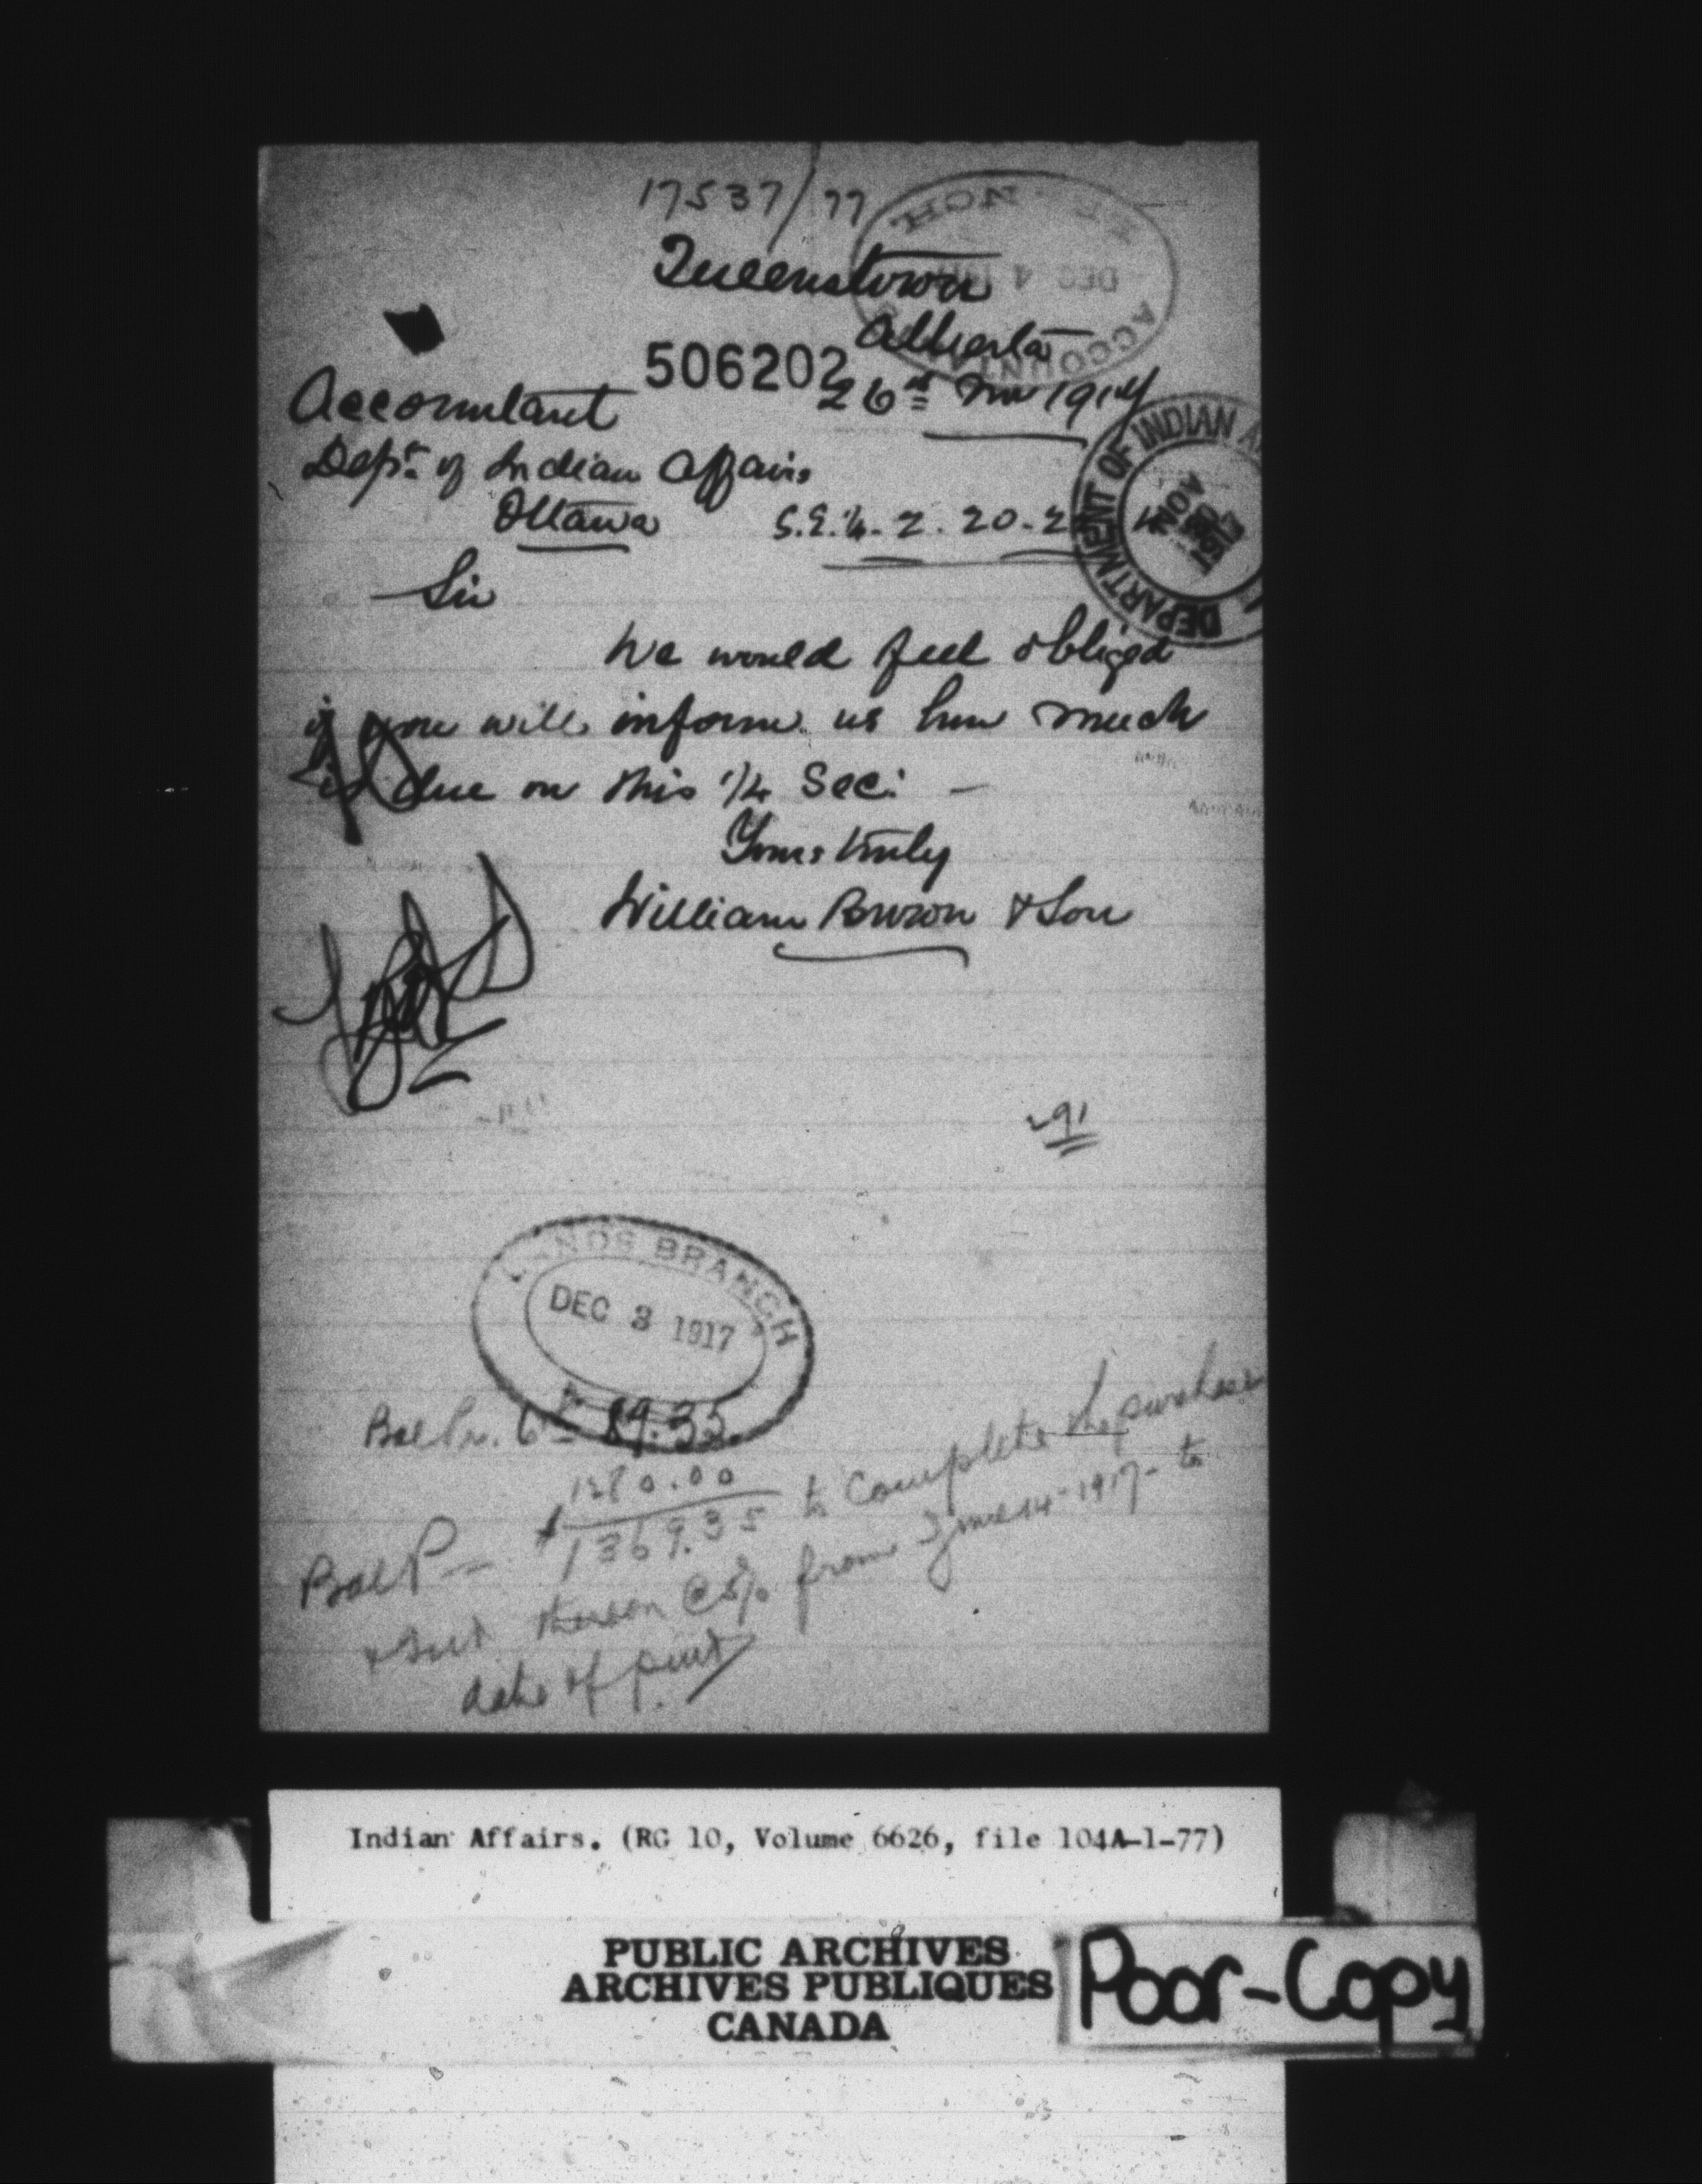 17537/77
Queenstown
Alberta
506202
26th Nov 1917
Accountant
Dept. of Indian Affairs
Ottawa
S.E.¼-2.20-2
DEPARTMENT OF INDIAN A
Sir
We would feel obliged
if you will inform us how much
is due on this 1/4 Sec: –
Yours truly
William Brown & Son
291
LANDS BRANCH
DEC 3 1917
Bal Pr. 6th 89.35
1280.00
Bal P – $1369.35 to complete the purchase
& Int thereon @ 5% from June 14-1917- to
date of pmt
Indian Affairs. (RG 10, Volume 6626, file 104A-1-77)
PUBLIC ARCHIVES
ARCHIVES PUBLIQUES
CANADA
Poor-Copy